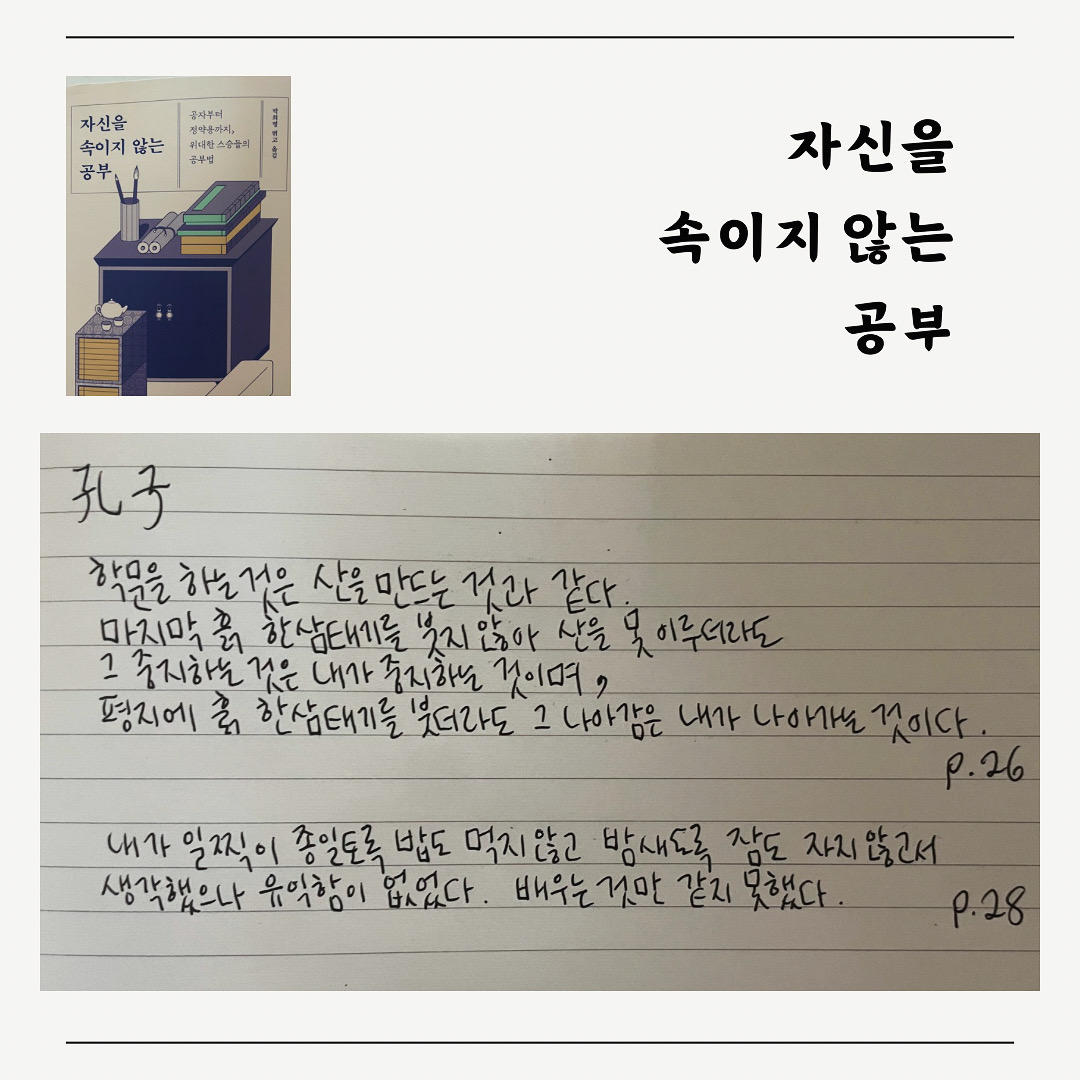 자신을
속이지 않는
공부
공자부터
정약용까지,
위대한 스승들의
공부법
박희병 엮고 옮김
자신을
속이지 않는
공부
孔子
학문을 하는 것은 산을 만드는 것과 같다.
마지막 흙 한삼태기를 붓지 않아 산을 못 이루더라도
그 중지하는 것은 내가 중지하는 것이며,
평지에 흙 한삼태기를 붓더라도 그 나아감은 내가 나아가는 것이다.
p.26
내가 일찍이 종일토록 밥도 먹지 않고 밤새도록 잠도 자지 않고서
생각했으나 유익함이 없었다. 배우는 것만 같지 못했다.
p.28